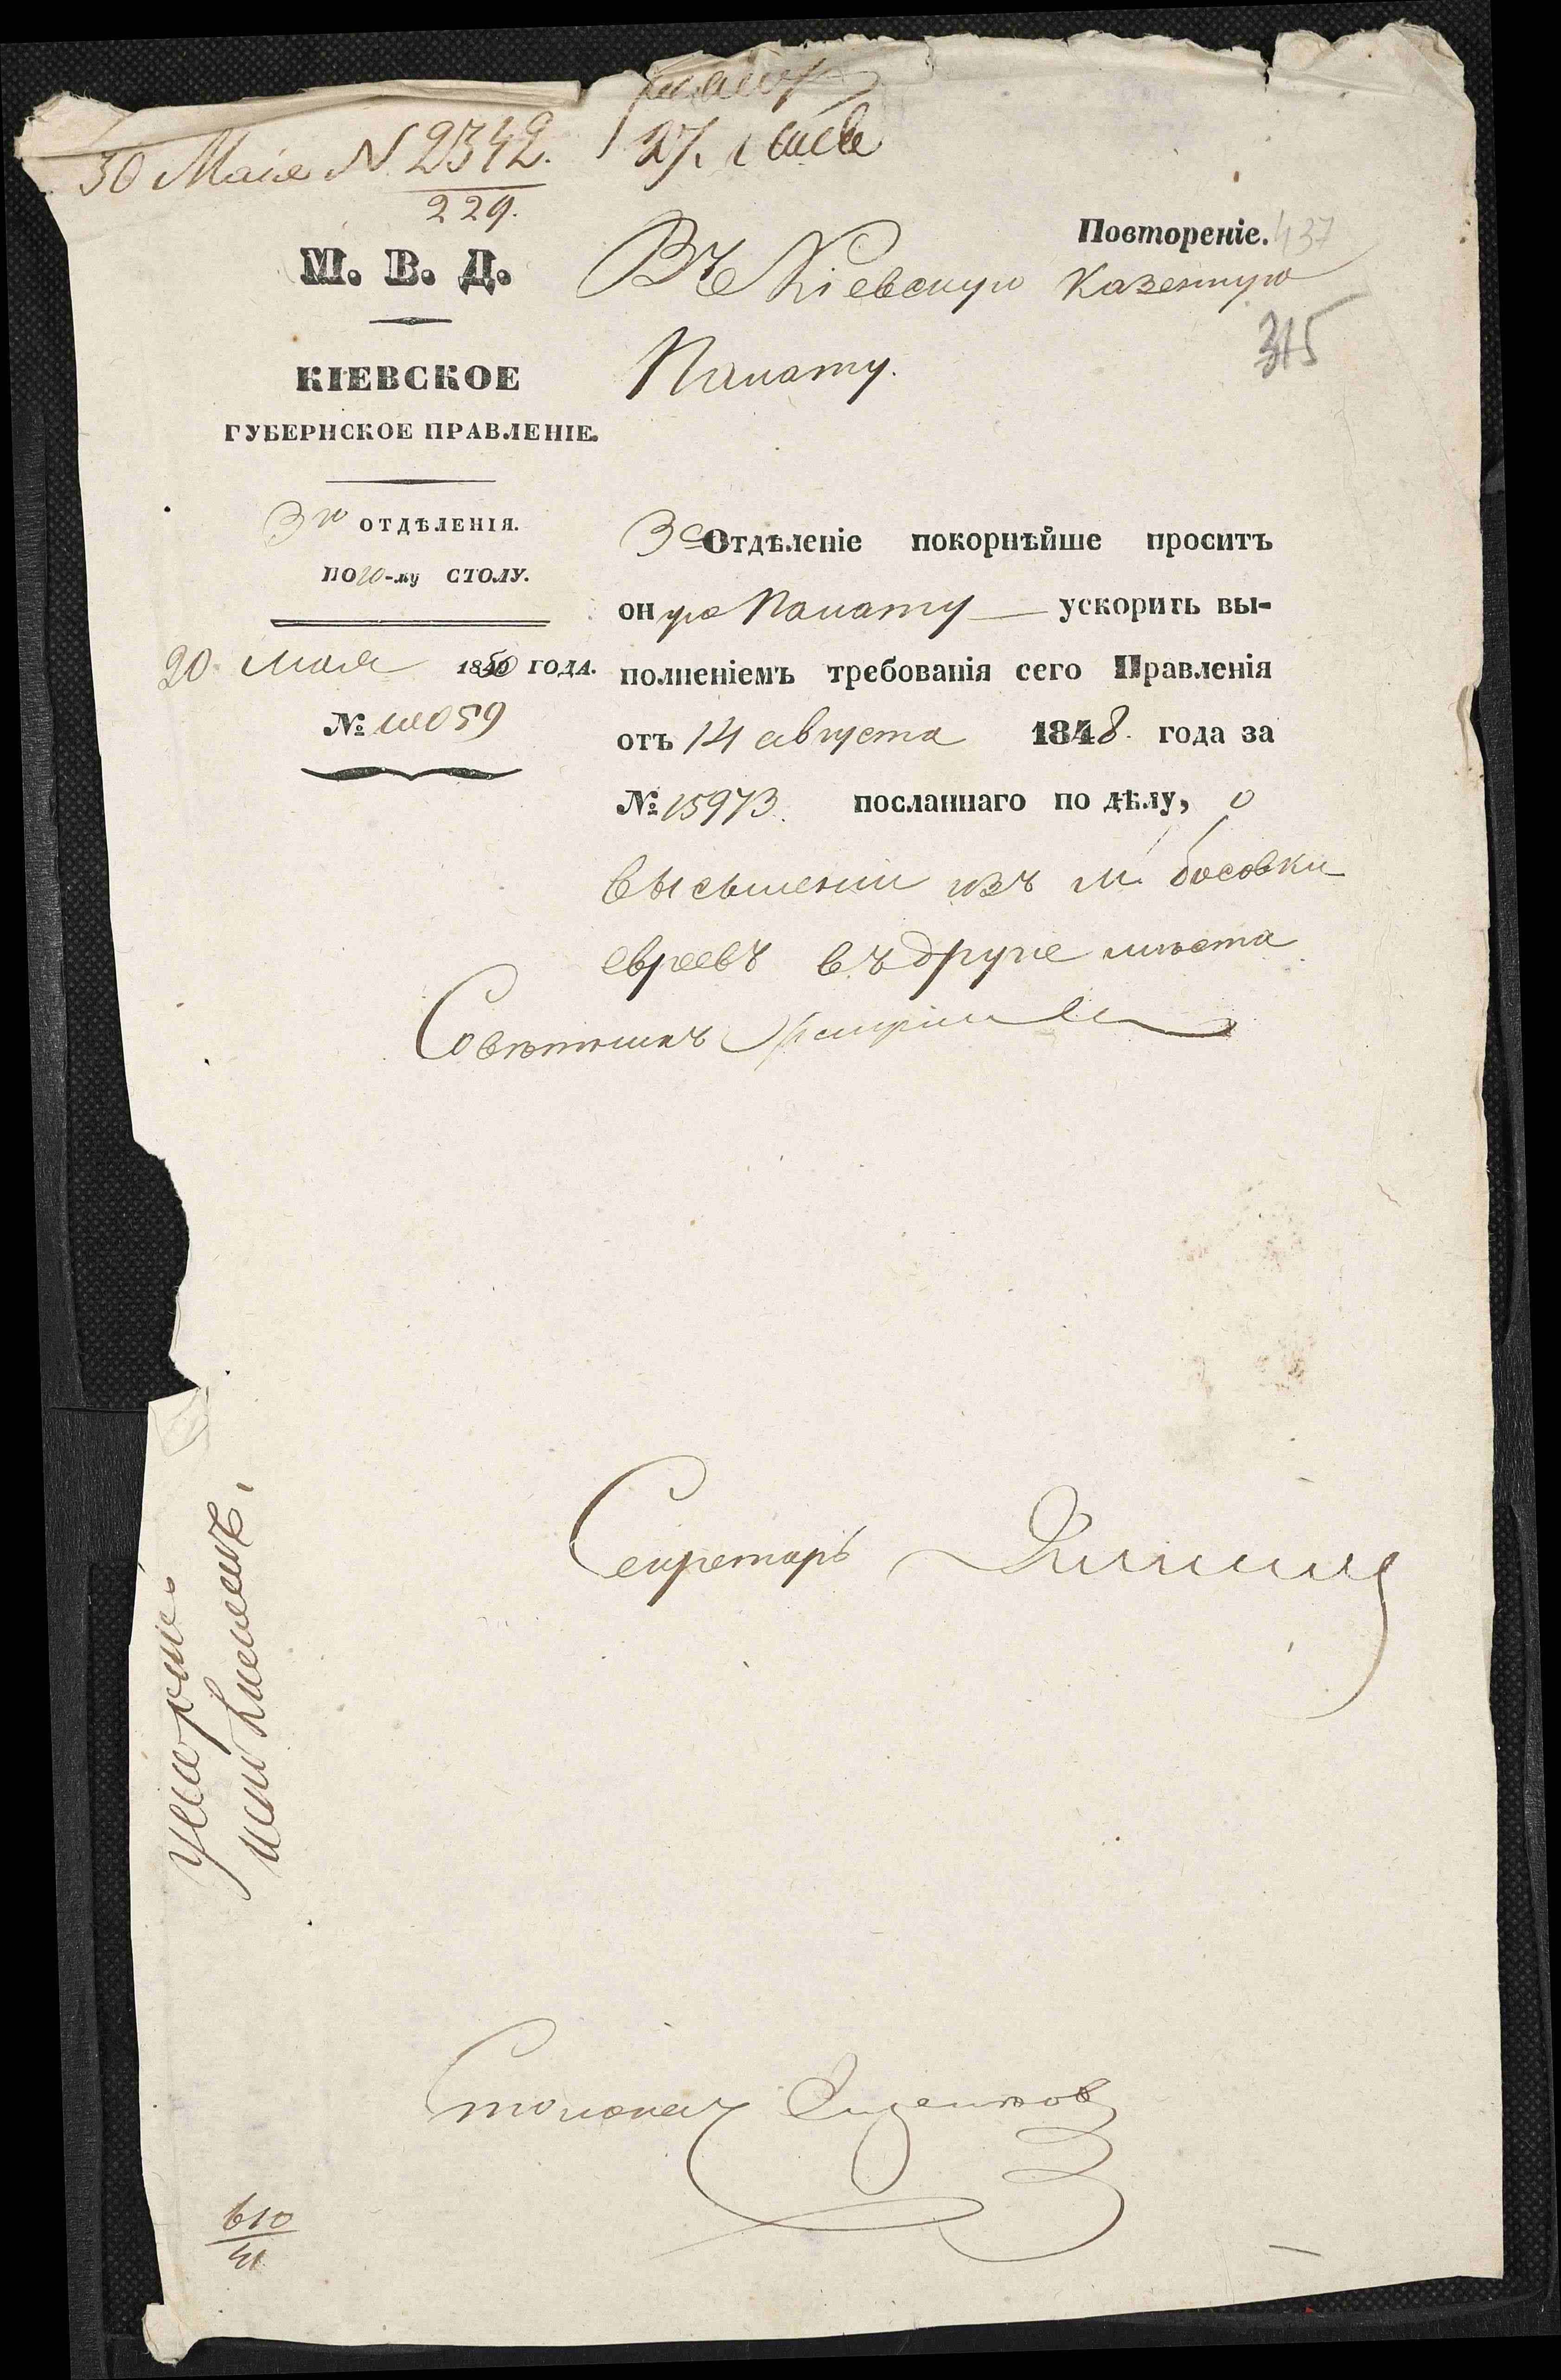 30 Маія N. 2342.
229.
27. Маія
М. В. Д.
КІЕВСКОЕ
ГУБЕРНСКОЕ ПРАВЛЕНІЕ.
3го ОТДѢЛЕНІЯ.
ПО 10-му СТОЛУ.
20 мая 1850 ГОДА.
Повтореніе. 437
Въ Кіевскую Казенную
315
Палату.
3е Отдѣленіе покорнѣйше проситъ
оную Палату ускорить вы-
полненіемъ требованія сего Правленія
отъ 14 августа 1848. года за
№ 15973. посланнаго по дѣлу, о
высылкѣ изъ м. босовки
евреевъ въ другіе мѣста
Совѣтникъ
Секретарь
Столонач
ускорить
исполненіемъ.
610
41